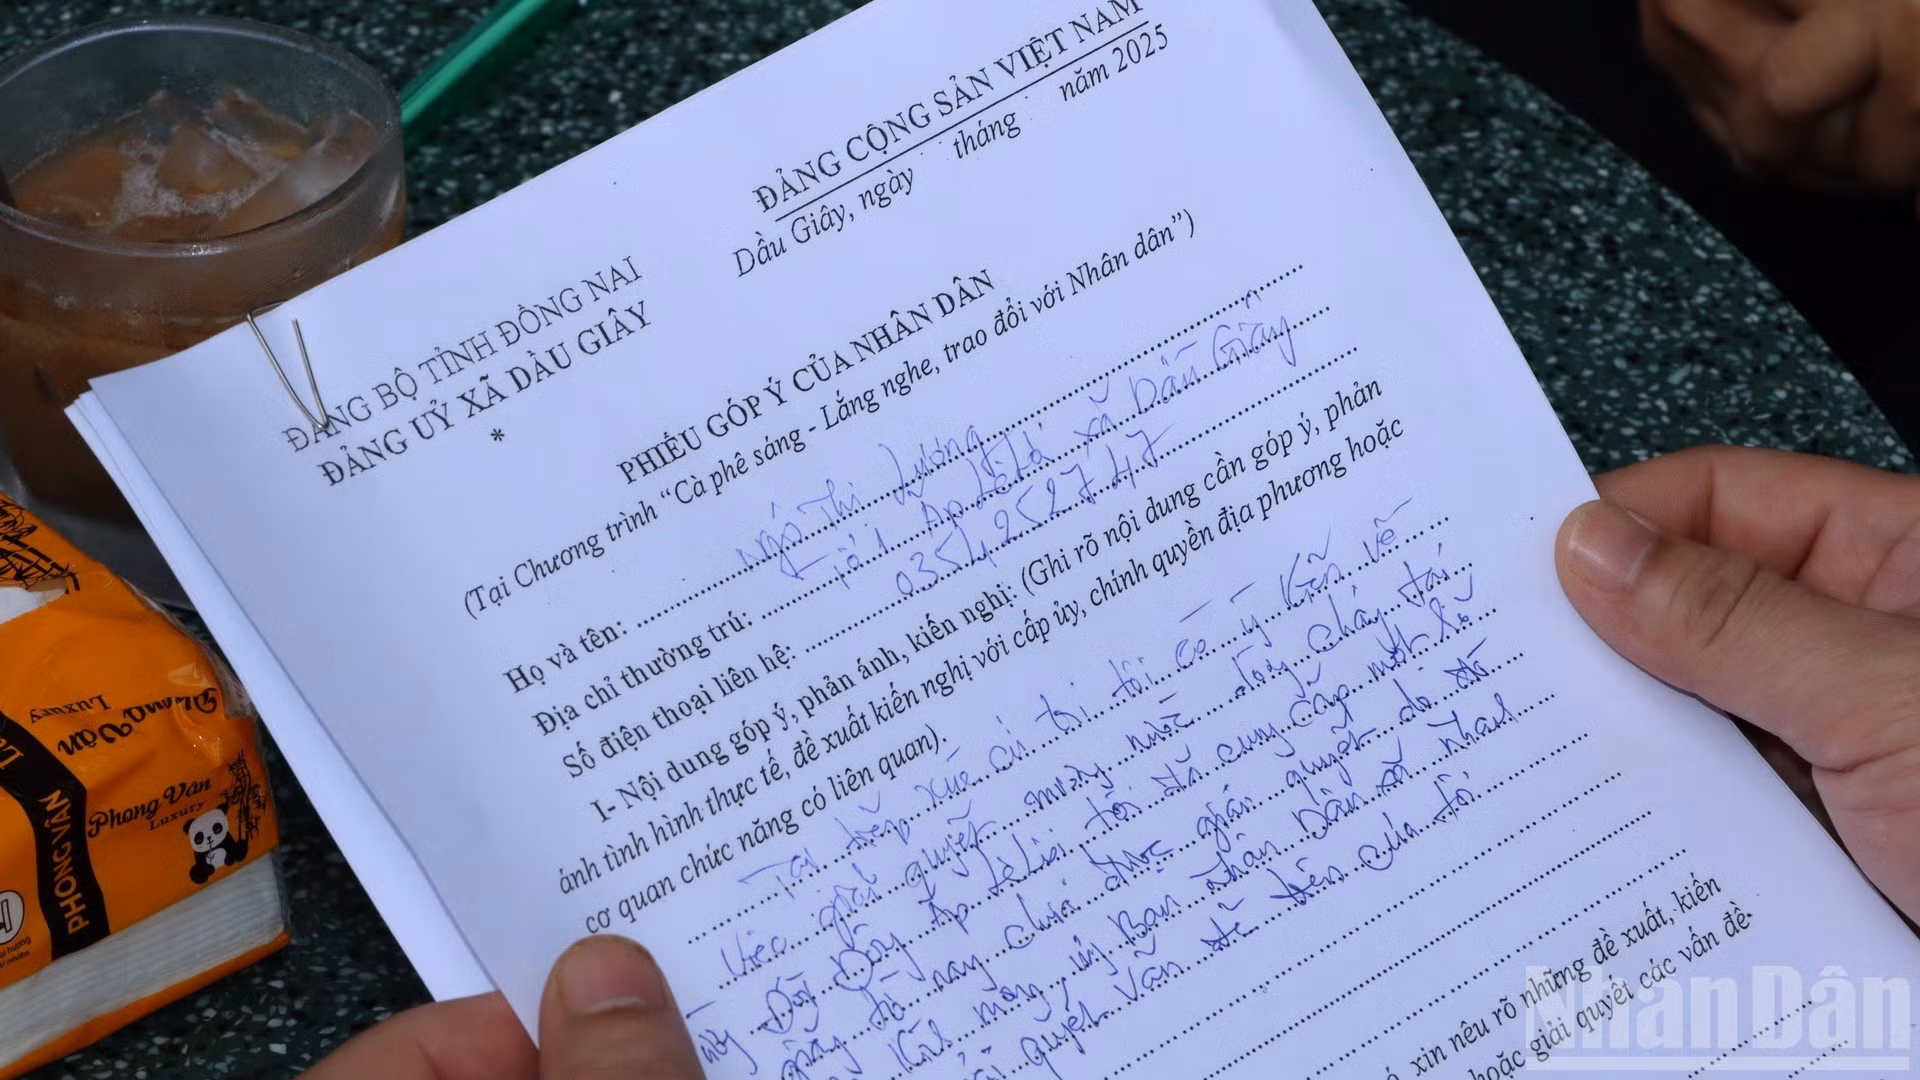 ĐẢNG BỘ TỈNH ĐỒNG NAI
ĐẢNG UỶ XÃ DẦU GIÂY
*
ĐẢNG CỘNG SẢN VIỆT NAM
Dầu Giây, ngày tháng năm 2025
PHIẾU GÓP Ý CỦA NHÂN DÂN
(Tại Chương trình “Cà phê sáng - Lắng nghe, trao đổi với Nhân dân”)
Họ và tên: Ngô Thị Lương
Địa chỉ thường trú: Tổ 1 Ấp Lê Lợi xã Dầu Giây
Số điện thoại liên hệ: 0354252747
I- Nội dung góp ý, phản ánh, kiến nghị: (Ghi rõ nội dung cần góp ý, phản
ánh tình hình thực tế, đề xuất kiến nghị với cấp ủy, chính quyền địa phương hoặc
cơ quan chức năng có liên quan).
Tại tiếp xúc cử tri tôi có ý kiến về
việc giải quyết mương nước dòng chảy tại
Ấp Lê Lợi tôi đã cung cấp một số
giấy tờ nay chưa được giải quyết do đó
Kính mong ủy Ban nhân Dân xã nhanh
quyết vấn đề trên của tôi
xin nêu rõ những đề xuất, kiến
hoặc giải quyết các vấn đề
Phong Vân
Luxury
PHONG VÂN
Phong Vân
Luxury
NhanDân